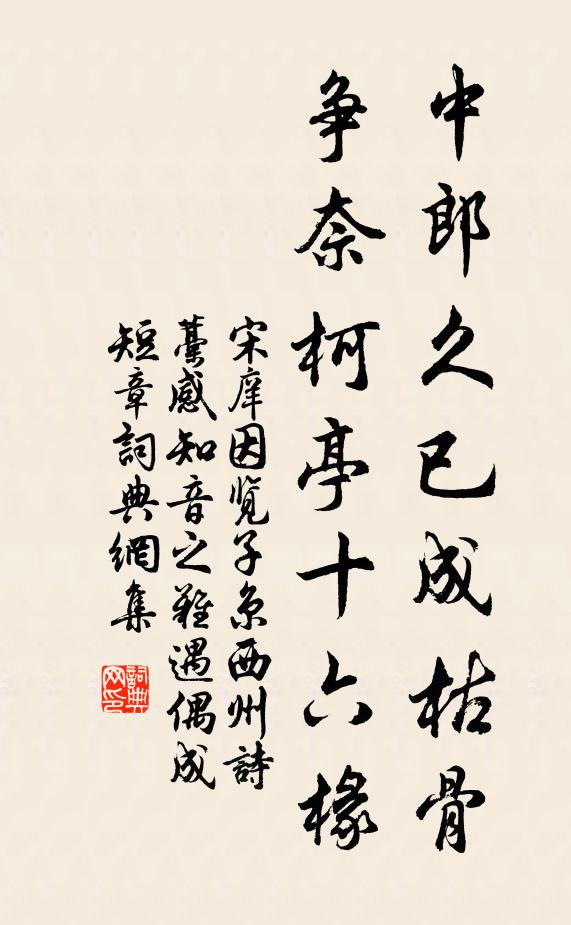 中郎久已成枯骨
争奈柯亭十六椽
宋庠因览子京西州詩
藳感知音之難遇偶成
短章詞典網集
詞典網印